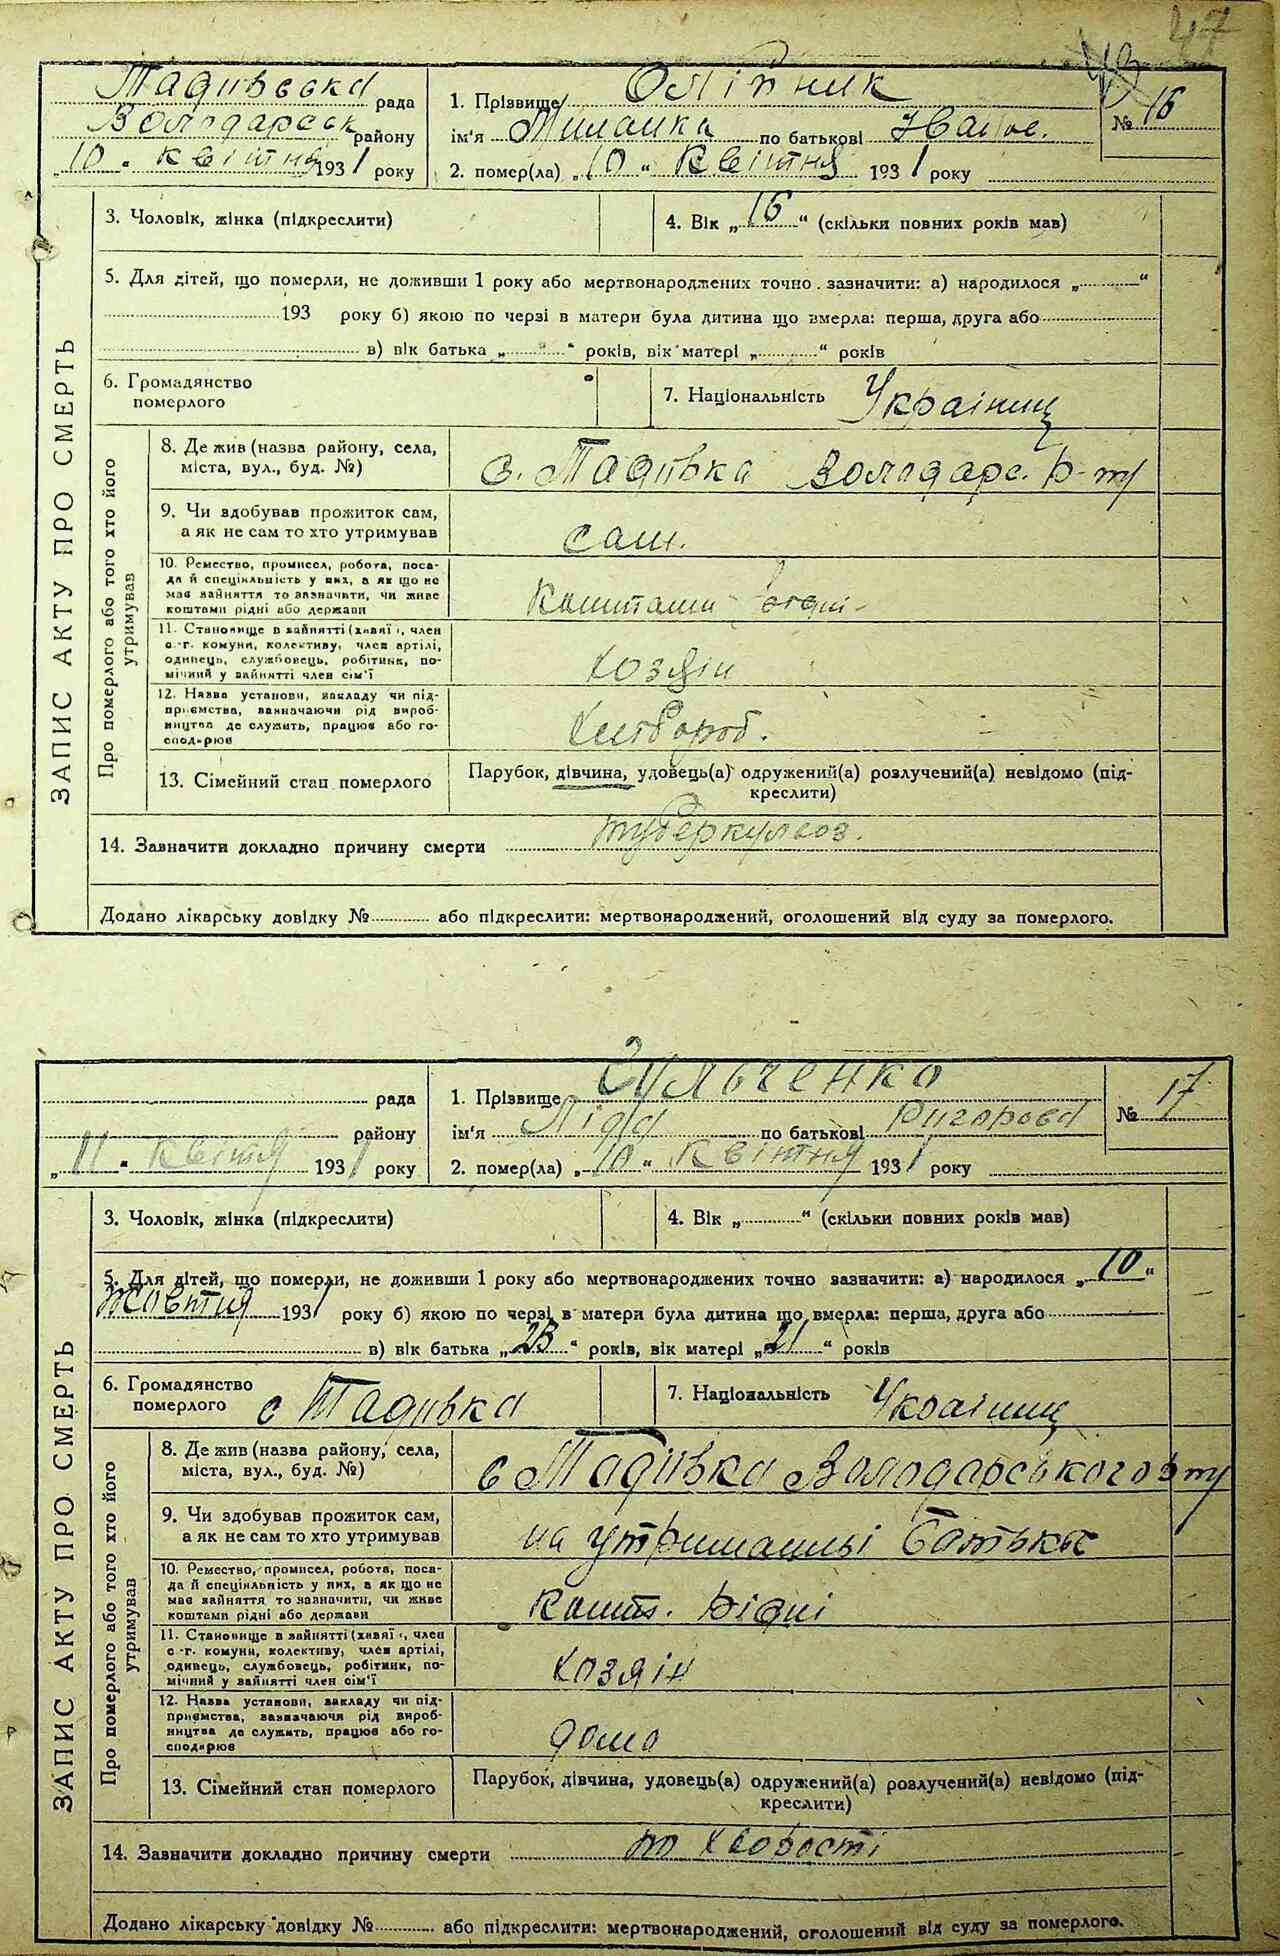 47
Тадіївська рада
Володарськ району
„10“ квітня 1931 року
1. Прізвище Олійник
ім'я Миланка по батькові
2. помер(ла) „10“ Квітня 1931 року
№ 16
3. Чоловік, жінка (підкреслити)
4. Вік „16“ (скільки повних років мав)
5. Для дітей, що померли, не доживши 1 року або мертвонароджених точно зазначити: а) народилося „ “
193 року б) якою по черзі в матери була дитина що вмерла: перша, друга або
в) вік батька „ “ років, вік матері „ “ років
6. Громадянство
померлого
7. Національність Україниц
ЗАПИС АКТУ ПРО СМЕРТЬ
Про померлого або того хто його
утримував
8. Де жив (назва району, села,
міста, вул., буд. №)
с. Тадіївка Володарс. р-ну
9. Чи здобував прожиток сам,
а як не сам то хто утримував
сам.
10. Ремество, промисел, робота, поса-
да й спеціяльність у них, а як що не
має зайняття то зазначити, чи живе
коштами рідні або держави
Коштами рідні
11. Становище в зайнятті (хазяї , член
с.-г. комуни, колективу, член артілі,
одинець, службовець, робітник, по-
мічний у зайнятті член сім'ї
хозяін
12. Назва установи, закладу чи під-
приємства, зазначаючи рід вироб-
ництва де служить, працює або го-
сподарює
13. Сімейний стан померлого
Парубок, дівчина, удовець(а) одружений(а) розлучений(а) невідомо (під-
креслити)
14. Зазначити докладно причину смерти туберкульоз.
Додано лікарську довідку № або підкреслити: мертвонароджений, оголошений від суду за померлого.
рада
району
„11“ квітня 1931 року
1. Прізвище
ім'я Лідя по батькові Григорова
2. помер(ла) „10“ квітня 1931 року
№ 17
3. Чоловік, жінка (підкреслити)
4. Вік „ “ (скільки повних років мав)
5. Для дітей, що померли, не доживши 1 року або мертвонароджених точно зазначити: а) народилося „10“
Жовтня 1931 року б) якою по черзі в матери була дитина що вмерла: перша, друга або
в) вік батька „23“ років, вік матері „21“ років
6. Громадянство
померлого с Тадіївка
7. Національність Україниц
ЗАПИС АКТУ ПРО СМЕРТЬ
Про померлого або того хто його
утримував
8. Де жив (назва району, села,
міста, вул., буд. №)
с Тадіївка Володарського р-ну
9. Чи здобував прожиток сам,
а як не сам то хто утримував
на утриманні Батька
10. Ремество, промисел, робота, поса-
да й спеціяльність у них, а як що не
має зайняття то зазначити, чи живе
коштами рідні або держави
Кошт. Рідні
11. Становище в зайнятті (хазяї , член
с.-г. комуни, колективу, член артілі,
одинець, службовець, робітник, по-
мічний у зайнятті член сім'ї
хозяін
12. Назва установи, закладу чи під-
приємства, зазначаючи рід вироб-
ництва де служить, працює або го-
сподарює
дома
13. Сімейний стан померлого
Парубок, дівчина, удовець(а) одружений(а) розлучений(а) невідомо (під-
креслити)
14. Зазначити докладно причину смерти по хворості
Додано лікарську довідку № або підкреслити: мертвонароджений, оголошений від суду за померлого.